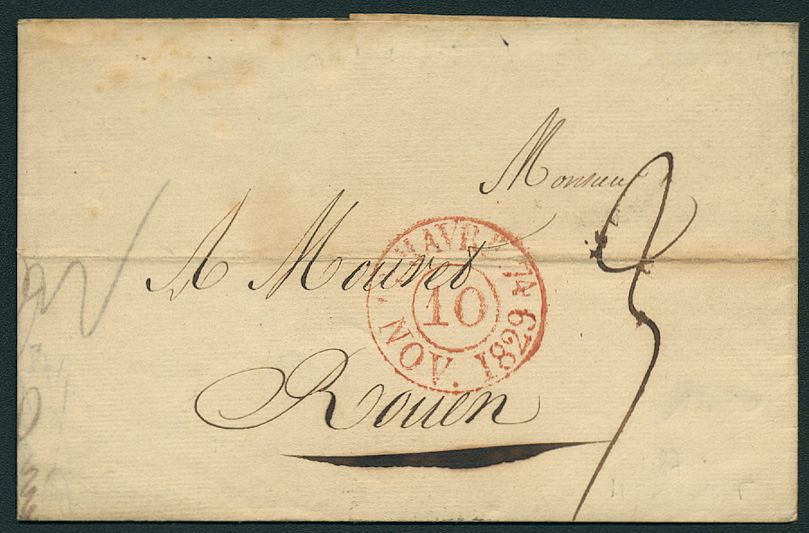 Monsieur
A Mouret
HAVRE 74
10
NOV. 1829
Rouen
3